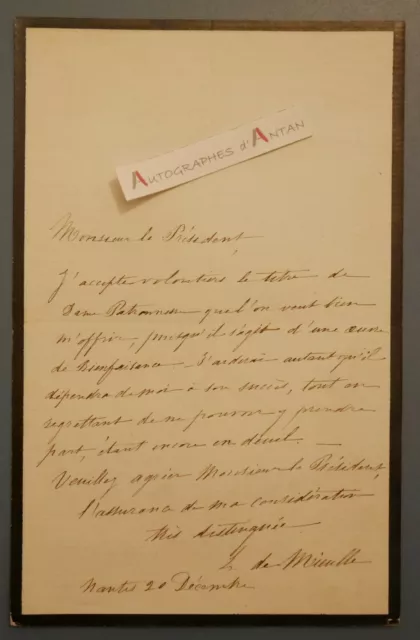 AUTOGRAPHES d'ANTAN
Monsieur le Président,
J'accepte volontiers le titre de
Dame Patronnesse que l'on veut bien
m'offrir, puisqu'il s'agit d'une œuvre
de bienfaisance. J'aiderai autant qu'il
dépendra de moi à son succès, tout en
regrettant de ne pouvoir y prendre
part, étant encore en deuil. —
Veuillez agréer Monsieur le Président,
l'assurance de ma considération
très distinguée.
L de
Nantes 20 Décembre